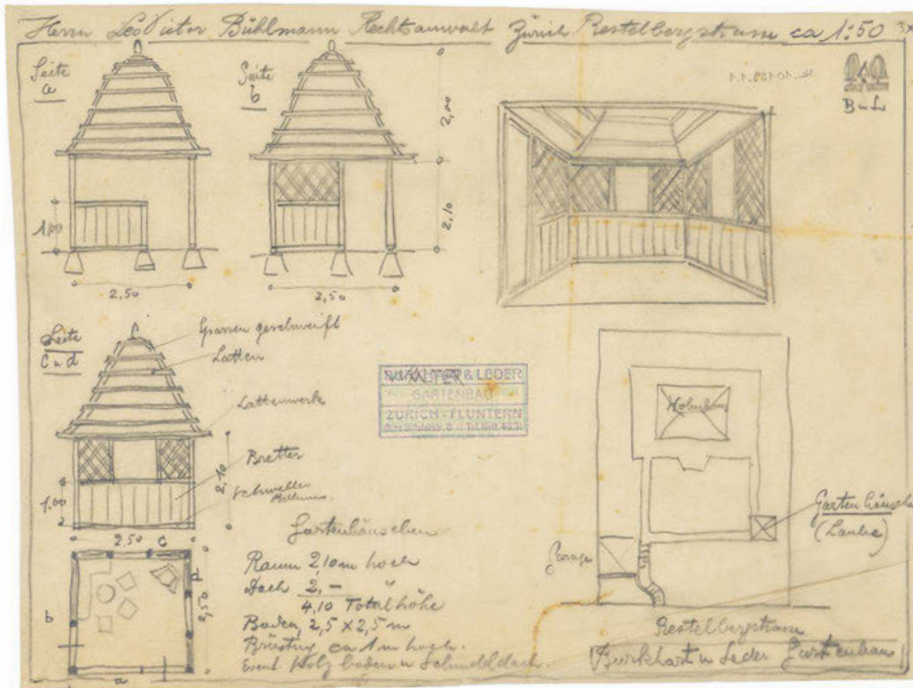 Herrn Leo Victor Bühlmann Rechtsanwalt Zürich Restelbergstrasse ca 1:50
Seite
a
Seite
b
2,00
2,10
1,00
2,50
2,50
B u L
Seite
c u d
geschweift
Latten
Lattenwerk
Bretter
Schwelle
1,00
2,10
2,50
c
d
2,50
b
a
& LEDER
GARTENBAU
ZÜRICH-FLUNTERN
Gartenhäuschen
Raum 2,10 m hoch
Dach 2,-
4,10 Totalhöhe
Boden 2,5 x 2,5 m
Brüstung ca 1 m hoch.
Event. Holzboden u Schindeldach.
Wohnhaus
Gartenhäuschen
(Laube)
Garage
Restelbergstrasse
Burkhart u Leder Gartenbau